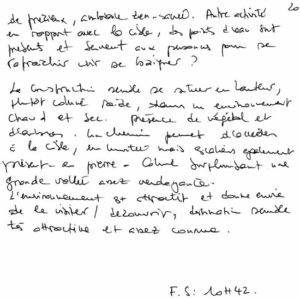 de précieux, ambiance zen-sacré. Autre activité
en rapport avec la cible, des points d'eau sont
présents et servent aux personnes pour se
rafraîchir voir se baigner ?
20
La construction semble se situer en hauteur,
plutôt colline aride, dans un environnement
chaud et sec. présence de végétal et
d'arbres. Un chemin permet d'accéder
à la cible, en montée mais escaliers également
présent en pierre - Colline surplombant une
grande vallée assez verdoyante.
L'environnement est attractif et donne envie
de le visiter / découvrir, destination semble
très attractive et assez connue.
F.S: 10H42.